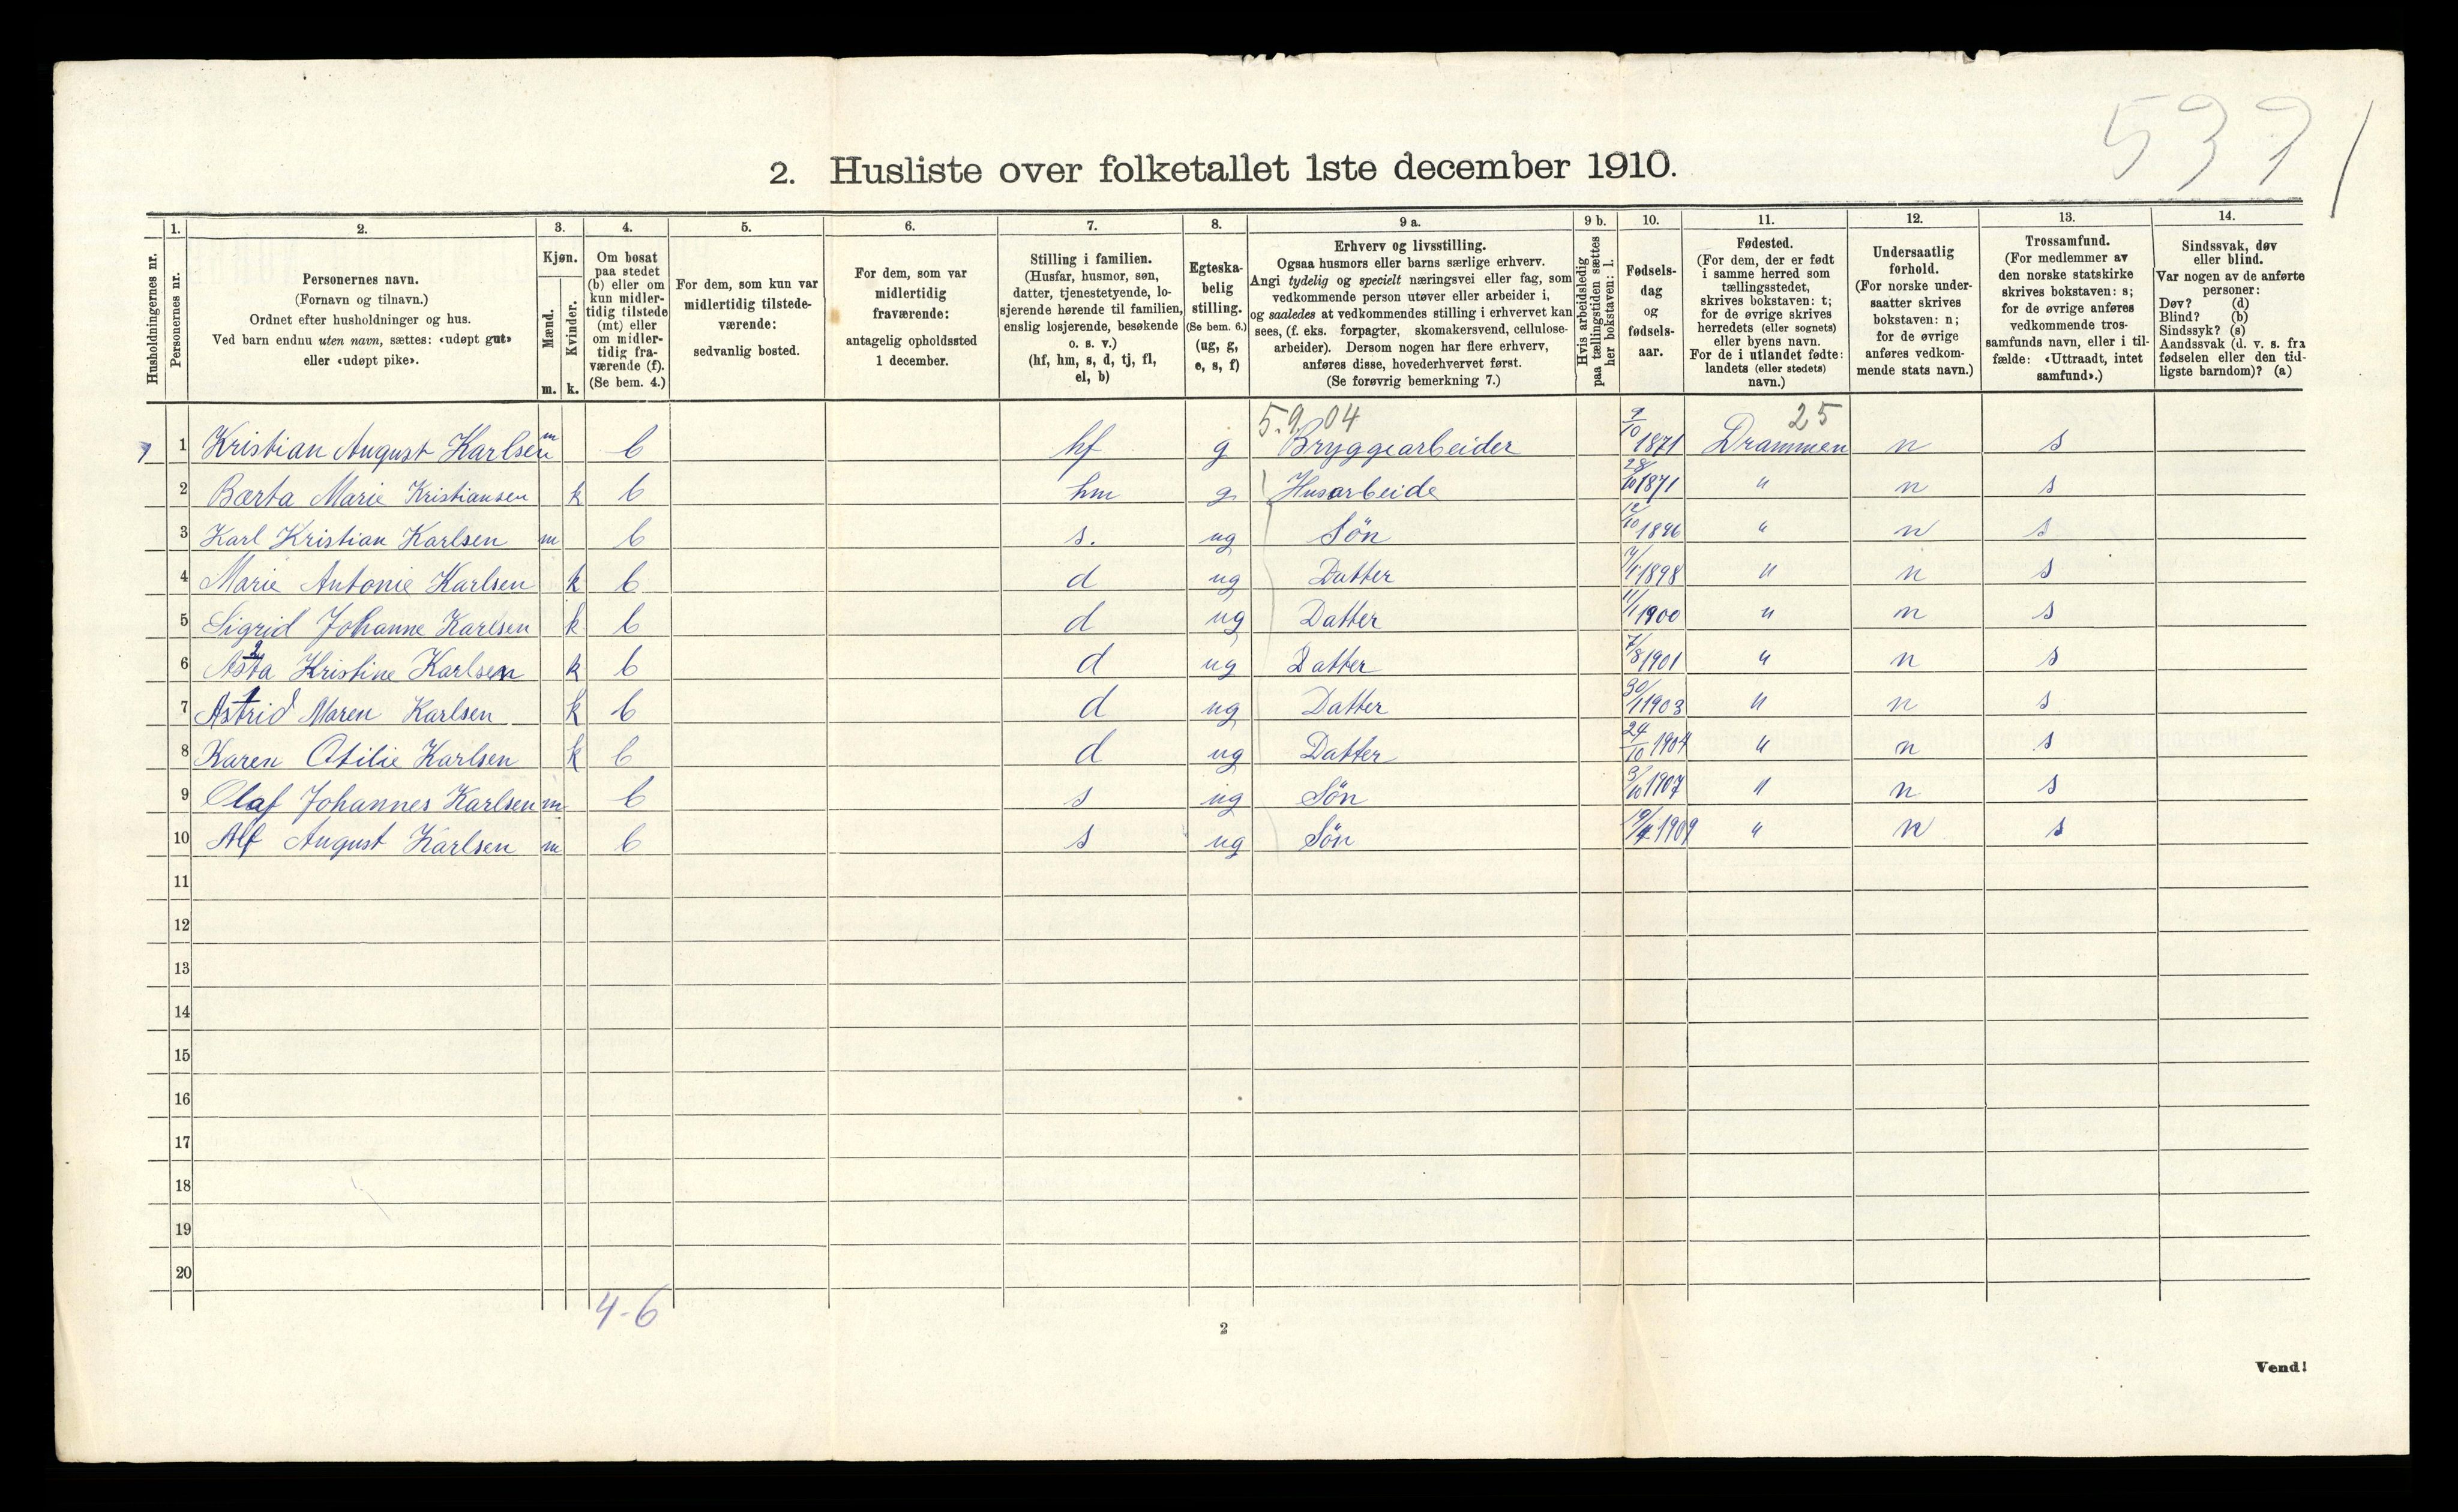 5371
2. Husliste over folketallet 1ste december 1910.
1. 2. 3. 4. 5. 6. 7. 8. 9 a. 9 b. 10. 11. 12. 13. 14.
Husholdningernes nr.
Personernes nr.
Personernes navn.
(Fornavn og tilnavn.)
Ordnet efter husholdninger og hus.
Ved barn endnu uten navn, sættes: «udøpt gut»
eller «udøpt pike».
Kjøn.
Mænd.
Kvinder.
m. k.
Om bosat
paa stedet
(b) eller om
kun midler-
tidig tilstede
(mt) eller
om midler-
tidig fra-
værende (f).
(Se bem. 4.)
For dem, som kun var
midlertidig tilstede-
værende:
sedvanlig bosted.
For dem, som var
midlertidig
fraværende:
antagelig opholdssted
1 december.
Stilling i familien.
(Husfar, husmor, søn,
datter, tjenestetyende, lo-
sjerende hørende til familien,
enslig losjerende, besøkende
o. s. v.)
(hf, hm, s, d, tj, fl,
el, b)
Egteska-
belig
stilling.
(Se bem. 6.)
(ug, g,
e, s, f)
Erhverv og livsstilling.
Ogsaa husmors eller barns særlige erhverv.
Angi tydelig og specielt næringsvei eller fag, som
vedkommende person utøver eller arbeider i,
og saaledes at vedkommendes stilling i erhvervet kan
sees, (f. eks. forpagter, skomakersvend, cellulose-
arbeider). Dersom nogen har flere erhverv,
anføres disse, hovederhvervet først.
(Se forøvrig bemerkning 7.)
Hvis arbeidsledig
paa tællingstiden sættes
her bokstaven: l.
Fødsels-
dag
og
fødsels-
aar.
Fødested.
(For dem, der er født
i samme herred som
tællingsstedet,
skrives bokstaven: t;
for de øvrige skrives
herredets (eller sognets)
eller byens navn.
For de i utlandet fødte:
landets (eller stedets)
navn.)
Undersaatlig
forhold.
(For norske under-
saatter skrives
bokstaven: n;
for de øvrige
anføres vedkom-
mende stats navn.)
Trossamfund.
(For medlemmer av
den norske statskirke
skrives bokstaven: s;
for de øvrige anføres
vedkommende tros-
samfunds navn, eller i til-
fælde: «Uttraadt, intet
samfund».)
Sindssvak, døv
eller blind.
Var nogen av de anførte
personer:
Døv? (d)
Blind? (b)
Sindssyk? (s)
Aandssvak (d. v. s. fra
fødselen eller den tid-
ligste barndom)? (a)
5.9.04 25
1 1 Kristian August Karlsen m b hf g Bryggearbeider 9/10 1871 Drammen n s
2 Bærta Marie Kristiansen k b hm g Husarbeide 28/10 1871 " n s
3 Karl Kristian Karlsen m b s. ug Søn 12/10 1896 " n s
4 Marie Antonie Karlsen k b d ug Datter 1898 " n s
5 Sigrid Johanne Karlsen k b d ug Datter 11/1 1900 " n s
2
6 Asta Kristine Karlsen k b d ug Datter 7/8 1901 " n s
1
7 Astrid Maren Karlsen k b d ug Datter 30/1 1903 " n s
8 Karen Otilie Karlsen k b d ug Datter 24/10 1904 " n s
9 Olaf Johannes Karlsen m b s ug Søn 3/10 1907 " n s
10 Alf August Karlsen m b s ug Søn 19/4 1909 " n s
11
12
13
14
15
16
17
18
19
20
4-6
2
Vend!